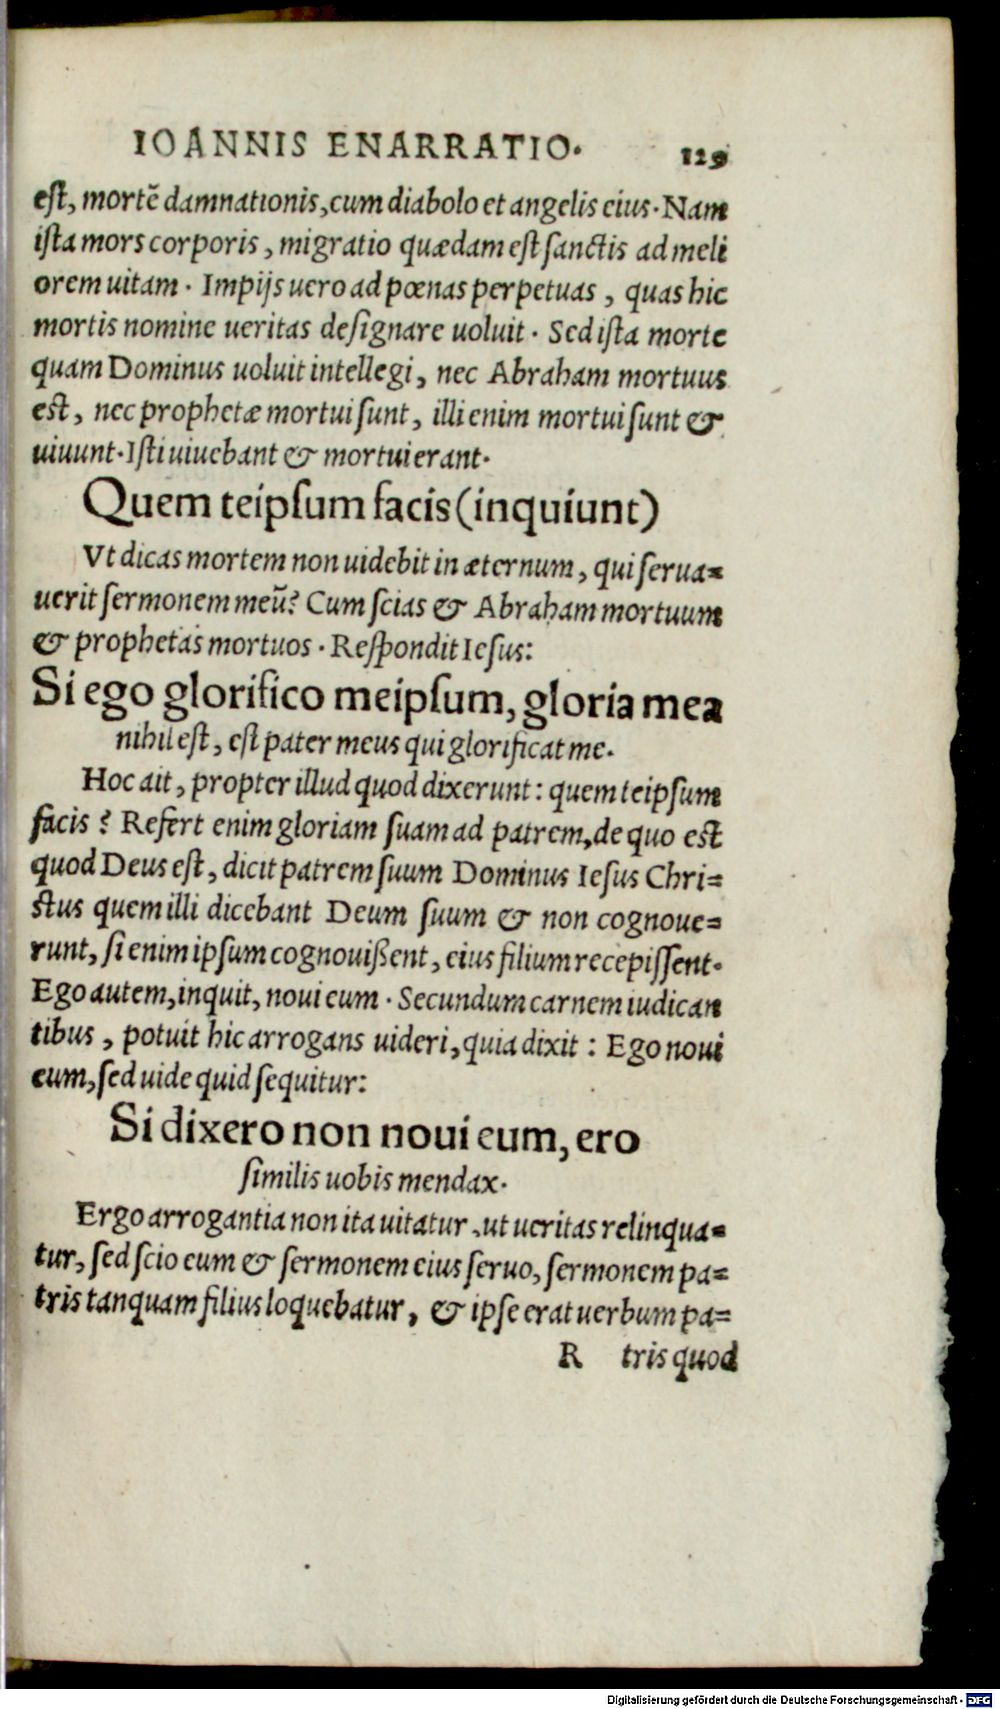 IOANNIS ENARRATIO. 129
eſt, mortē damnationis, cum diabolo et angelis eius. Nam
iſta mors corporis, migratio quædam eſt ſanctis ad meli
orem uitam. Impijs uero ad pœnas perpetuas, quas hic
mortis nomine ueritas deſignare uoluit. Sed iſta morte
quam Dominus uoluit intellegi, nec Abraham mortuus
eſt, nec prophetæ mortui ſunt, illi enim mortui ſunt &
uiuunt. Iſti uiuebant & mortui erant.
Quem teipſum facis (inquiunt)
Vt dicas mortem non uidebit in æternum, qui ſerua=
uerit ſermonem meū? Cum ſcias & Abraham mortuum
& prophetas mortuos. Reſpondit Ieſus:
Si ego glorifico meipſum, gloria mea
nihil eſt, eſt pater meus qui glorificat me.
Hoc ait, propter illud quod dixerunt: quem teipſum
facis? Refert enim gloriam ſuam ad patrem, de quo eſt
quod Deus eſt, dicit patrem ſuum Dominus Ieſus Chri=
ſtus quem illi dicebant Deum ſuum & non cognoue=
runt, ſi enim ipſum cognouißent, eius filium recepiſſent.
Ego autem, inquit, noui eum. Secundum carnem iudican
tibus, potuit hic arrogans uideri, quia dixit: Ego noui
eum, ſed uide quid ſequitur:
Si dixero non noui eum, ero
ſimilis uobis mendax.
Ergo arrogantia non ita uitatur, ut ueritas relinqua=
tur, ſed ſcio eum & ſermonem eius ſeruo, ſermonem pa=
tris tanquam filius loquebatur, & ipſe erat uerbum pa=
R tris quod
Digitalisierung gefördert durch die Deutsche Forschungsgemeinschaft - DFG